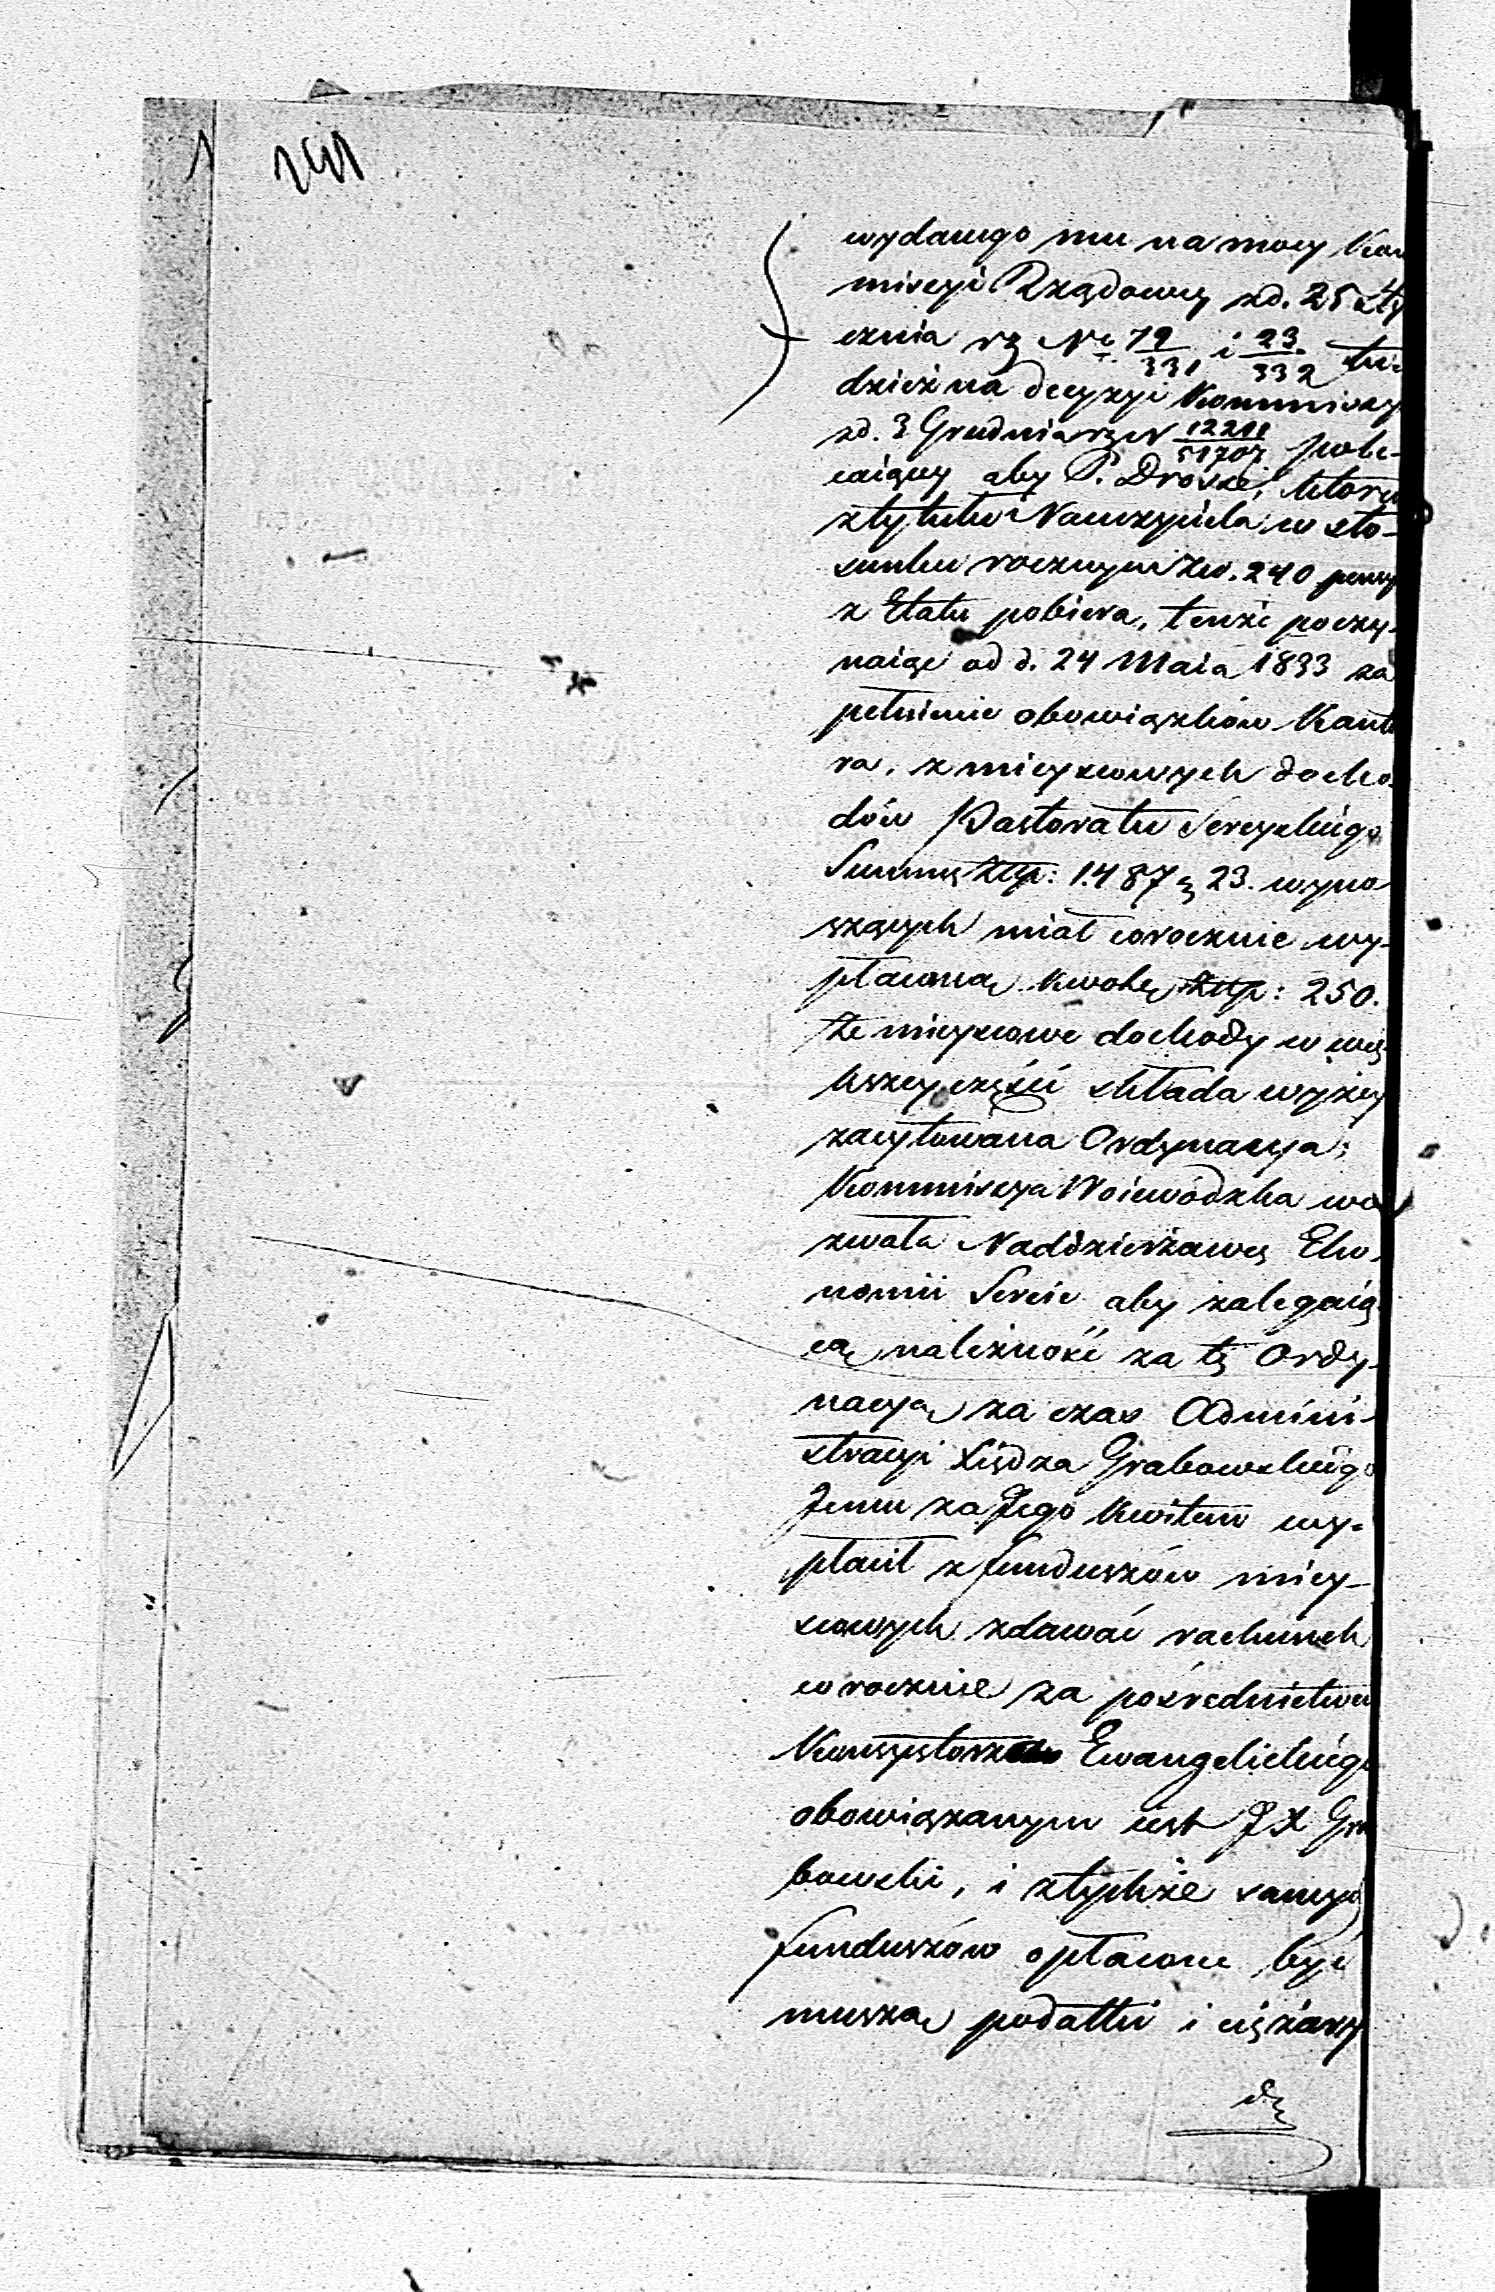 wydanego mu na mocy Kom
misyi Rządowey zd. 25 Sty
cznia rz № 79/331 i 23/332 tu-
dzież na decyzyi Kommissyi
zd. 3 Grudnia rz N 12211/51707 pole-
caiący aby P. Droszé, ktory
z tytułu Nauczyciela w sto-
sunku rocznym Zło. 240 pensyi
z Etatu pobiera, tenże poczy-
naiąc od d. 24 Maia 1833 za
pełnienie obowiązków Kanto
ra, z mieyscowych docho-
dów Pastoratu Sereyskiego
Summę Złp: 1487 g 23. wyno
szących miał corocznie wy-
płaconą kwotę Złp: 250.
Te mieyscowe dochody w wię
kszey części składa wyżey
zacytowana Ordynacya;
Kommissya Woiewódzka we
zwała Naddzierżawcę Eko-
nomii Sereie aby zalegaią-
cą należność za tę Ordy-
nacyą za czas Admini-
stracyi Xiędza Grabowskiego
Jemu za Jego Kwitem wy-
płacił z funduszów miey-
scowych zdawać rachunek
corocznie za pośrednictwem
Konsystorza Ewangelickiego
obowiązanym iest JX Gra
bowski, i z tychże samych
funduszów opłacone być
muszą podatki i ciężary